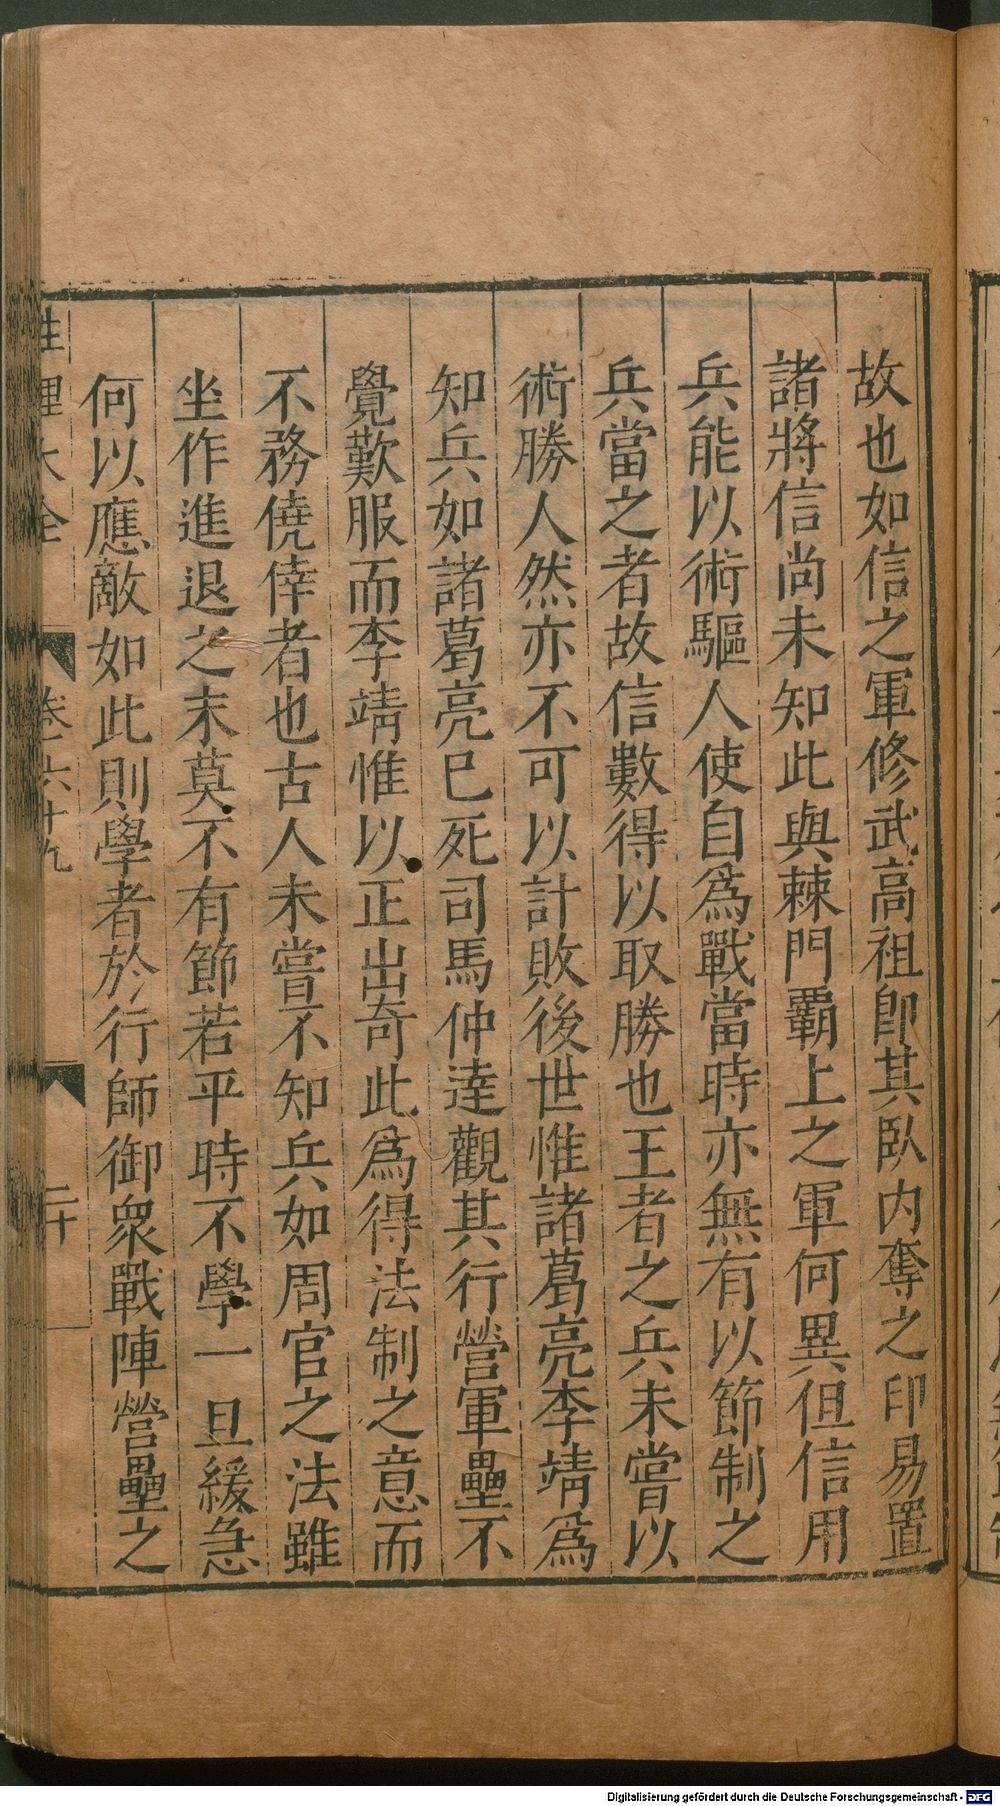 故也如信之軍修武高祖卽其臥内奪之印易置
諸將信尚未知此與棘門覇上之軍何異但信用
兵能以術驅人使自爲戰當時亦無有以節制之
兵當之者故信數得以取勝也王者之兵未嘗以
術勝人然亦不可以計敗後世惟諸葛亮李靖爲
知兵如諸葛亮已死司馬仲達觀其行營軍壘不
覺歎服而李靖惟以正出奇此爲得法制之意而
不務僥倖者也古人未嘗不知兵如周官之法雖
坐作進退之末莫不有節若平時不學一旦緩急
何以應敵如此則學者於行師御衆戰陣營壘之
性理大全 卷六十九 二十
Digitalisierung gefördert durch die Deutsche Forschungsgemeinschaft - DFG